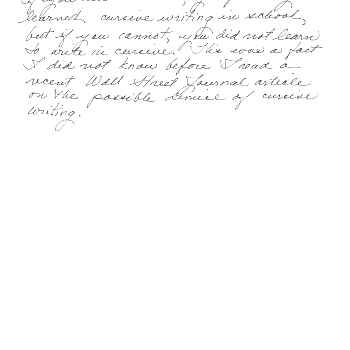 learned cursive writing in school,
but if you cannot, you did not learn
to write in cursive. This was a fact
I did not know before I read a
recent Wall Street Journal article
on the possible demise of cursive
writing.